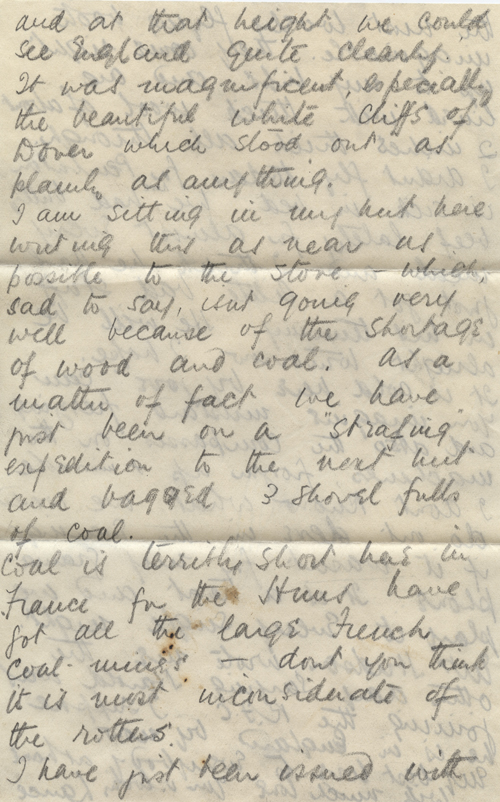 and at that height we could
see England quite clearly.
It was magnificent, especially
the beautiful white cliffs of
Dover which stood out as
plainly as anything.
I am sitting in my hut here
writing this as near as
possible to the stove – which,
sad to say, isnt going very
well because of the shortage
of wood and coal. As a
matter of fact we have
just been on a "strafing"
expedition to the next hut
and bagged 3 shovel fulls
of coal.
Coal is terribly short here in
France for the Huns have
got all the large French
coal-mines – dont you think
it is most inconsiderate of
the rotters.
I have just been issued with